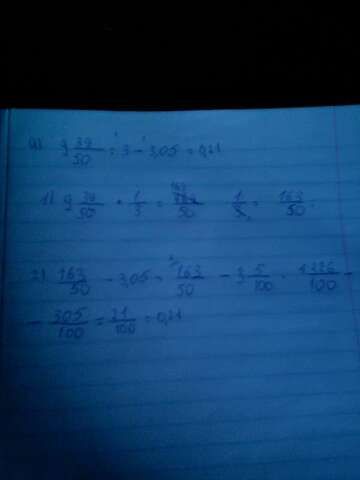 а) 9 39/50 : 3 - 3,05 = 0,21
1) 9 39/50 · 1/3 = 163/50 · 1/1 = 163/50
2) 163/50 - 3,05 = 163/50 - 3 5/100 = 326/100 -
- 305/100 = 21/100 = 0,21